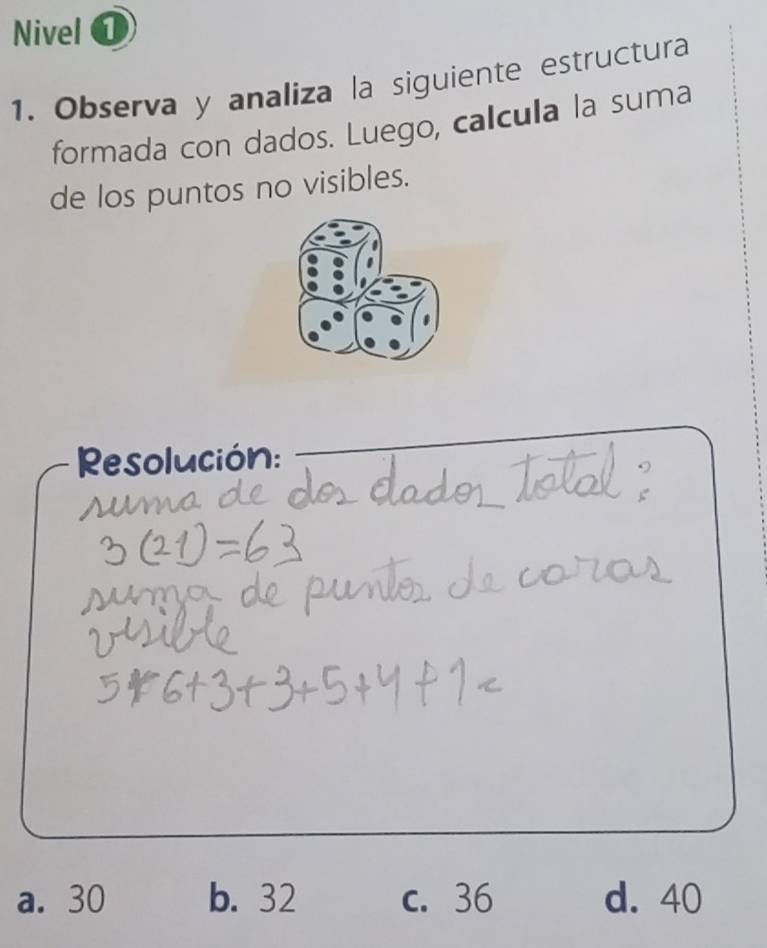 Nivel 1
1. Observa y analiza la siguiente estructura
formada con dados. Luego, calcula la suma
de los puntos no visibles.
Resolución:
suma de dos dados total:
3(21)=63
suma de puntos de caras
visible
5+6+3+3+5+4+1=
a. 30 b. 32 c. 36 d. 40